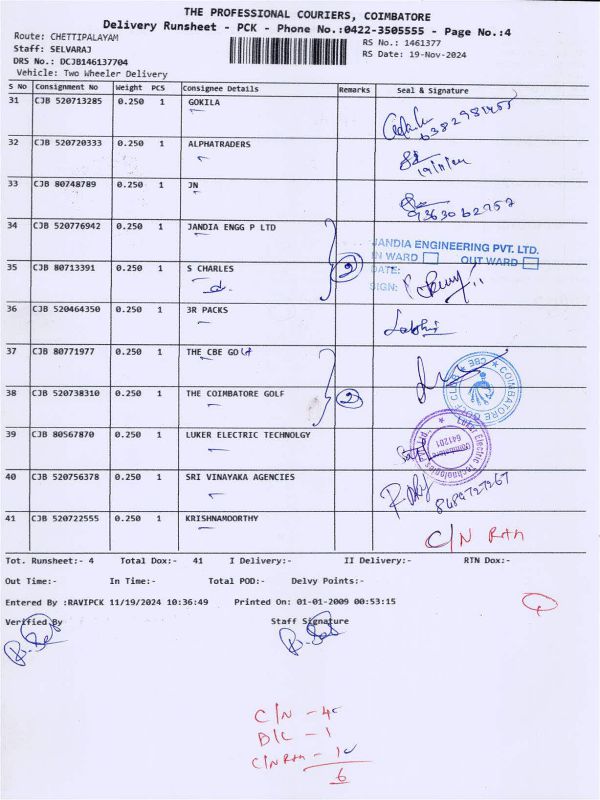 THE PROFESSIONAL COURIERS, COIMBATORE
Delivery Runsheet - PCK - Phone No.:0422-3505555 - Page No.:4
Route: CHETTIPALAYAM
RS No.: 1461377
Staff: SELVARAJ
RS Date: 19-Nov-2024
DRS No.: DCJB146137704
Vehicle: Two Wheeler Delivery
S No Consignment No Weight PCS Consignee Details Remarks Seal & Signature
31 CJB 520713285 0.250 1 GOKILA
32 CJB 520720333 0.250 1 ALPHATRADERS
33 CJB 80748789 0.250 1 JN
9363062757
34 CJB 520776942 0.250 1 JANDIA ENGG P LTD
JANDIA ENGINEERING PVT. LTD.
IN WARD OUT WARD
2
35 CJB 80713391 0.250 1 S CHARLES
DATE:
SIGN:
36 CJB 520464350 0.250 1 3R PACKS
37 CJB 80771977 0.250 1 THE CBE GOLF
38 CJB 520738310 0.250 1 THE COIMBATORE GOLF
2
COIMBATORE GOLF CLUB CBE
39 CJB 80567870 0.250 1 LUKER ELECTRIC TECHNOLGY
Luker Electric Technologies
Coimbatore
641201
40 CJB 520756378 0.250 1 SRI VINAYAKA AGENCIES
8489727267
41 CJB 520722555 0.250 1 KRISHNAMOORTHY
C/N RAM
Tot. Runsheet:- 4 Total Dox:- 41 I Delivery:- II Delivery:- RTN Dox:-
Out Time:- In Time:- Total POD:- Delvy Points:-
Entered By :RAVIPCK 11/19/2024 10:36:49 Printed On: 01-01-2009 00:53:15
Verified By Staff Signature
C/N - 4
D/L - 1
C/N RAM - 1
6